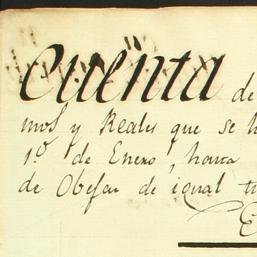 Cuenta de
mos y Reales que se h
1.º de Enero, hasta
de Obejas de igual ti